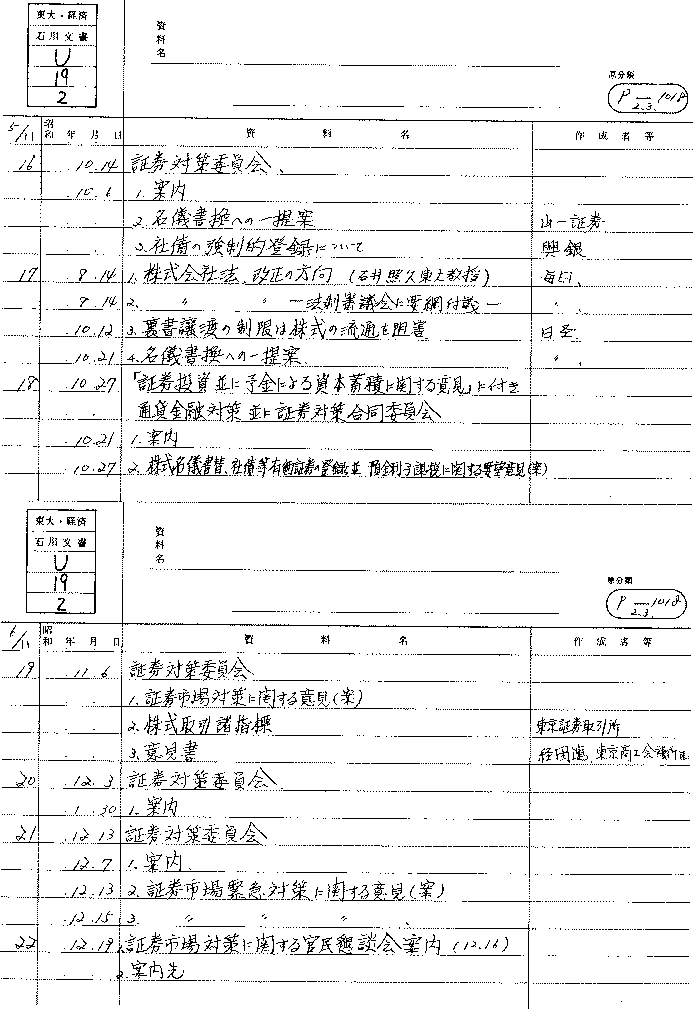 東大・経済
石川文書
U
19
2
資料名
原分類
P 1018
2.3.
5/11 昭和 年 月 日 資料名 作成者等
16 10.14 証券対策委員会
10.6 1.案内
2.名儀書換への一提案 山一証券
3.社債の強制的登録について 興銀
17 9.14 1.株式会社法、改正の方向(石井照久東大教授) 毎日、
9.14 2. 〃 〃 ー法制審議会に要綱付議ー 〃、
10.12 3.裏書譲渡の制限は株式の流通を阻害 日圣
10.21 4.名儀書換への一提案 〃、
18 10.27 「証券投資並に予金による資本蓄積に関する意見」に付き
通貨金融対策並に証券対策合同委員会
10.21 1.案内
10.27 2.株式名儀書替、社債等有価証券の登録並 預金利子課税に関する要望意見(案)
東大・経済
石川文書
U
19
2
資料名
原分類
P 1018
2.3.
6/11 昭和 年 月 日 資料名 作成者等
19 11.6 証券対策委員会
1.証券市場対策に関する意見(案)
2.株式取引諸指標 東京証券取引所
3.意見書 経団連、東京商工会議所
20 12.3 証券対策委員会
1.30 1.案内
21 12.13 証券対策委員会
12.7 1.案内
12.13 2.証券市場緊急対策に関する意見(案)
12.15 3. 〃 〃 〃
22 12.19 1.証券市場対策に関する官民懇談会案内(12.16)
2.案内先